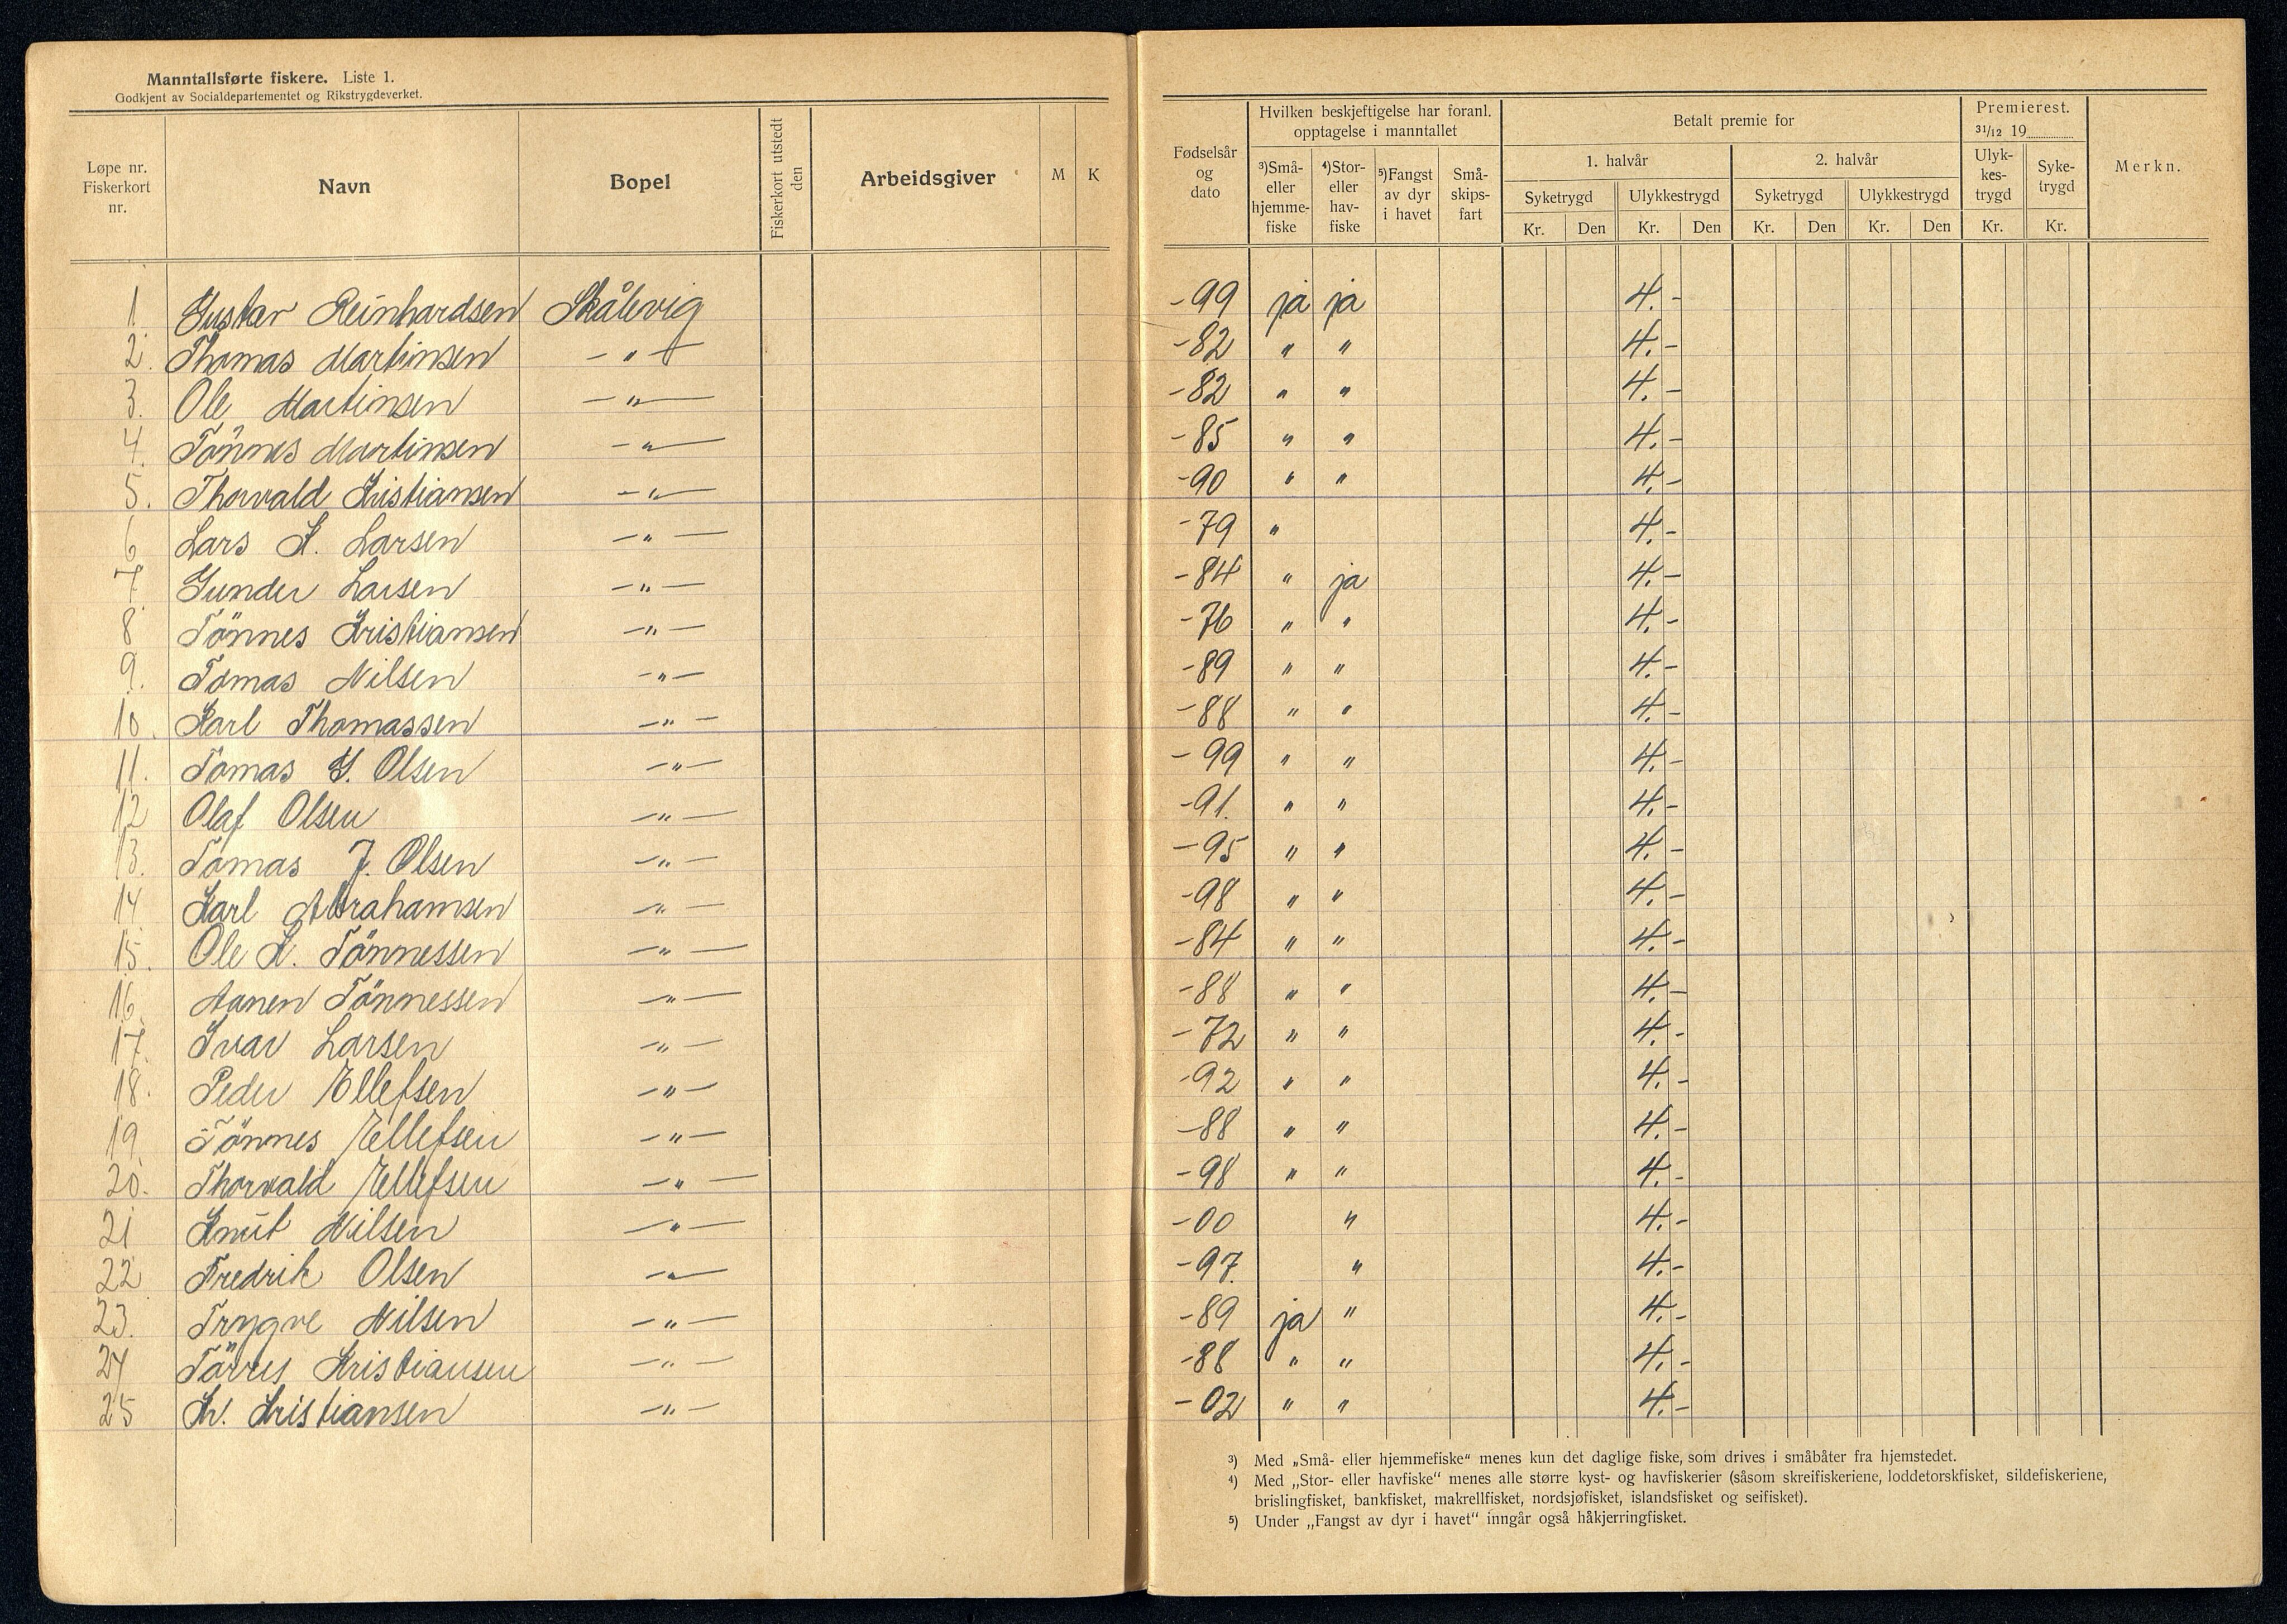 Manntallsførte fiskere. Liste 1.
Godkjent av Socialdepartementet og Rikstrygdeverket.
Løpe nr. Fiskerkort nr. | Navn | Bopel | Fiskerkort utstedt den | Arbeidsgiver | M | K | Fødselsår og dato | Hvilken beskjeftigelse har foranl. opptagelse i manntallet | Betalt premie for | Premierest. 31/12 19 | Merkn.
³)Små- eller hjemme-fiske | ⁴)Stor- eller hav-fiske | ⁵)Fangst av dyr i havet | Små-skips-fart | 1. halvår | 2. halvår | Ulyk-kes-trygd | Syke-trygd
Syketrygd | Ulykkestrygd | Syketrygd | Ulykkestrygd
Kr. | Den | Kr. | Den | Kr. | Den | Kr. | Den | Kr. | Kr.
1. Gustav Reinhardsen Skålevig -99 ja ja 4.-
2. Thomas Martinsen -"- -82 " " 4.-
3. Ole Martinsen -"- -82 " " 4.-
4. Tönnes Martinsen -"- -85 " " 4.-
5. Thorvald Kristiansen -"- -90 " " 4.-
6 Lars K. Larsen -"- -79 " 4.-
7. Gunder Larsen -"- -84 " ja 4.-
8 Tönnes Kristiansen -"- -76 " " 4.-
9. Tomas Nilsen -"- -89 " " 4.-
10. Karl Thomassen -"- -88 " " 4.-
11. Tomas G. Olsen -"- -99 " " 4.-
12 Olaf Olsen -"- -91. " " 4.-
13. Tomas J. Olsen -"- -95 " " 4.-
14. Karl Abrahamsen -"- -98 " " 4.-
15. Ole K. Tönnessen -"- -84 " " 4.-
16. Aanen Tönnessen -"- -88 " " 4.-
17. Ivar Larsen -"- -72 " " 4.-
18. Peder Ellefsen -"- -92 " " 4.-
19. Tönnes Ellefsen -"- -88 " " 4.-
20. Thorvald Ellefsen -"- -98 " " 4.-
21 Knut Nilsen -"- -00 " 4.-
22 Fredrik Olsen -"- -97. " 4.-
23. Trygve Nilsen -"- -89 ja " 4.-
24 Törres Kristiansen -"- -88 " " 4.-
25 Kr. Kristiansen -"- -02 " " 4.-
³) Med „Små- eller hjemmefiske“ menes kun det daglige fiske, som drives i småbåter fra hjemstedet.
⁴) Med „Stor- eller havfiske“ menes alle større kyst- og havfiskerier (såsom skreifiskeriene, loddetorskfisket, sildefiskeriene,
brislingfisket, bankfisket, makrellfisket, nordsjøfisket, islandsfisket og seifisket).
⁵) Under „Fangst av dyr i havet“ inngår også håkjerringfisket.